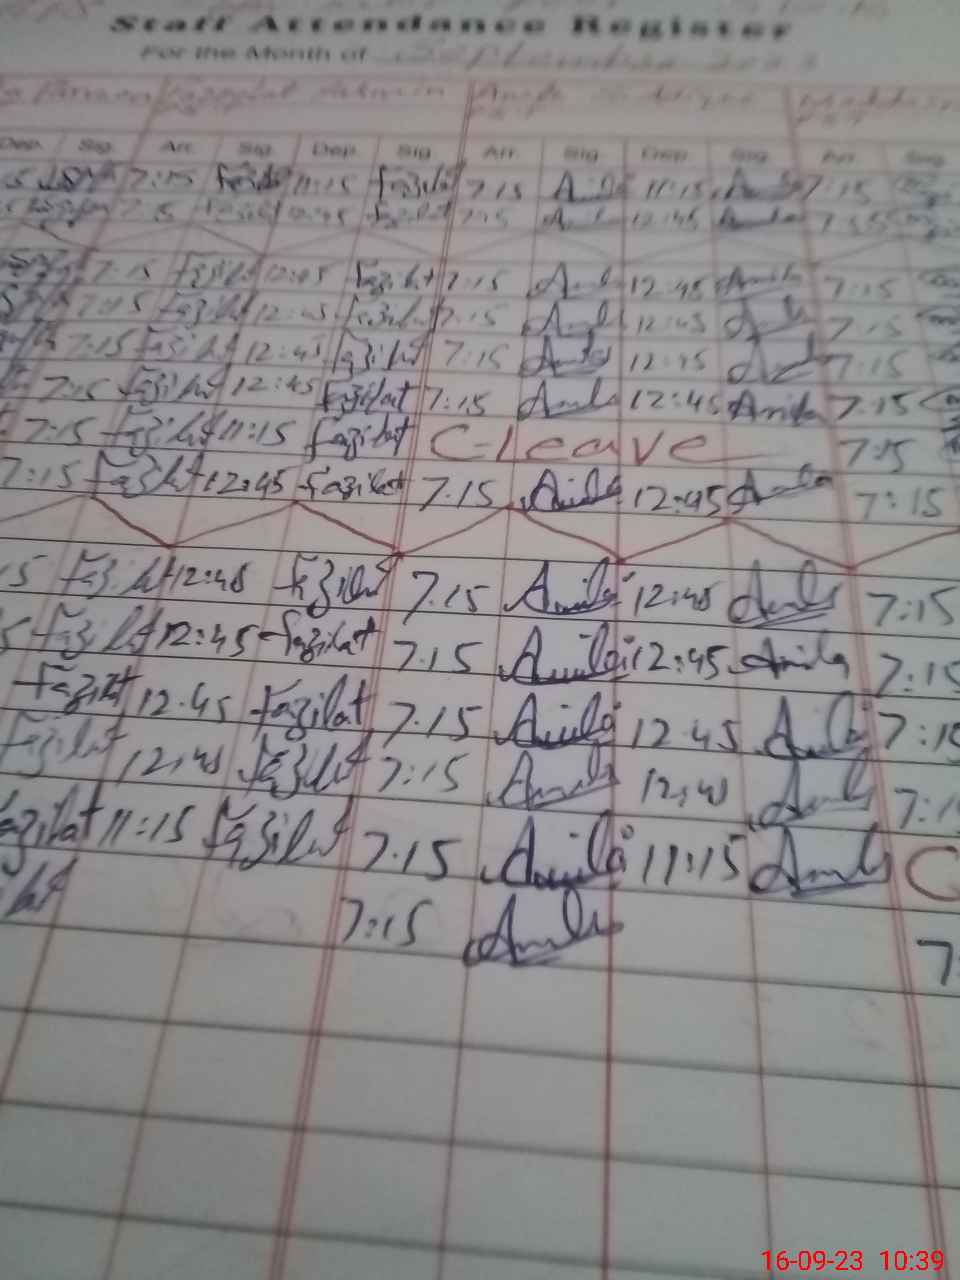 Staff Attendance Register
For the Month of September
Dep. Sig. Arr. Sig. Dep. Sig. Arr. Sig. Dep. Sig. Arr. Sig.
7:15 11:15 Fazilat 7:15 Anila 11:15 Anila 7:15
7:15 Fazilat 12:45 Fazilat 7:15 Anila 12:45 Anila
7:15 Fazilat 12:45 Fazilat 7:15 Anila 12:45 Anila 7:15
7:15 Fazilat 12:45 Fazilat 7:15 Anila 12:45 Anila 7:15
7:15 Fazilat 12:45 Fazilat 7:15 Anila 12:45 Anila 7:15
7:15 Fazilat 12:45 Fazilat 7:15 Anila 12:45 Anila 7:15
7:15 Fazilat 11:15 Fazilat C-leave 7:15
7:15 Fazilat 12:45 Fazilat 7:15 Anila 12:45 Anila 7:15
15 Fazilat 12:45 Fazilat 7:15 Anila 12:45 Anila 7:15
5 Fazilat 12:45 Fazilat 7:15 Anila 12:45 Anila 7:15
Fazilat 12:45 Fazilat 7:15 Anila 12:45 Anila 7:15
Fazilat 12:45 Fazilat 7:15 Anila 12:45 Anila 7:1
Fazilat 11:15 Fazilat 7:15 Anila 11:15 Anila C
7:15 Anila 7:
16-09-23 10:39